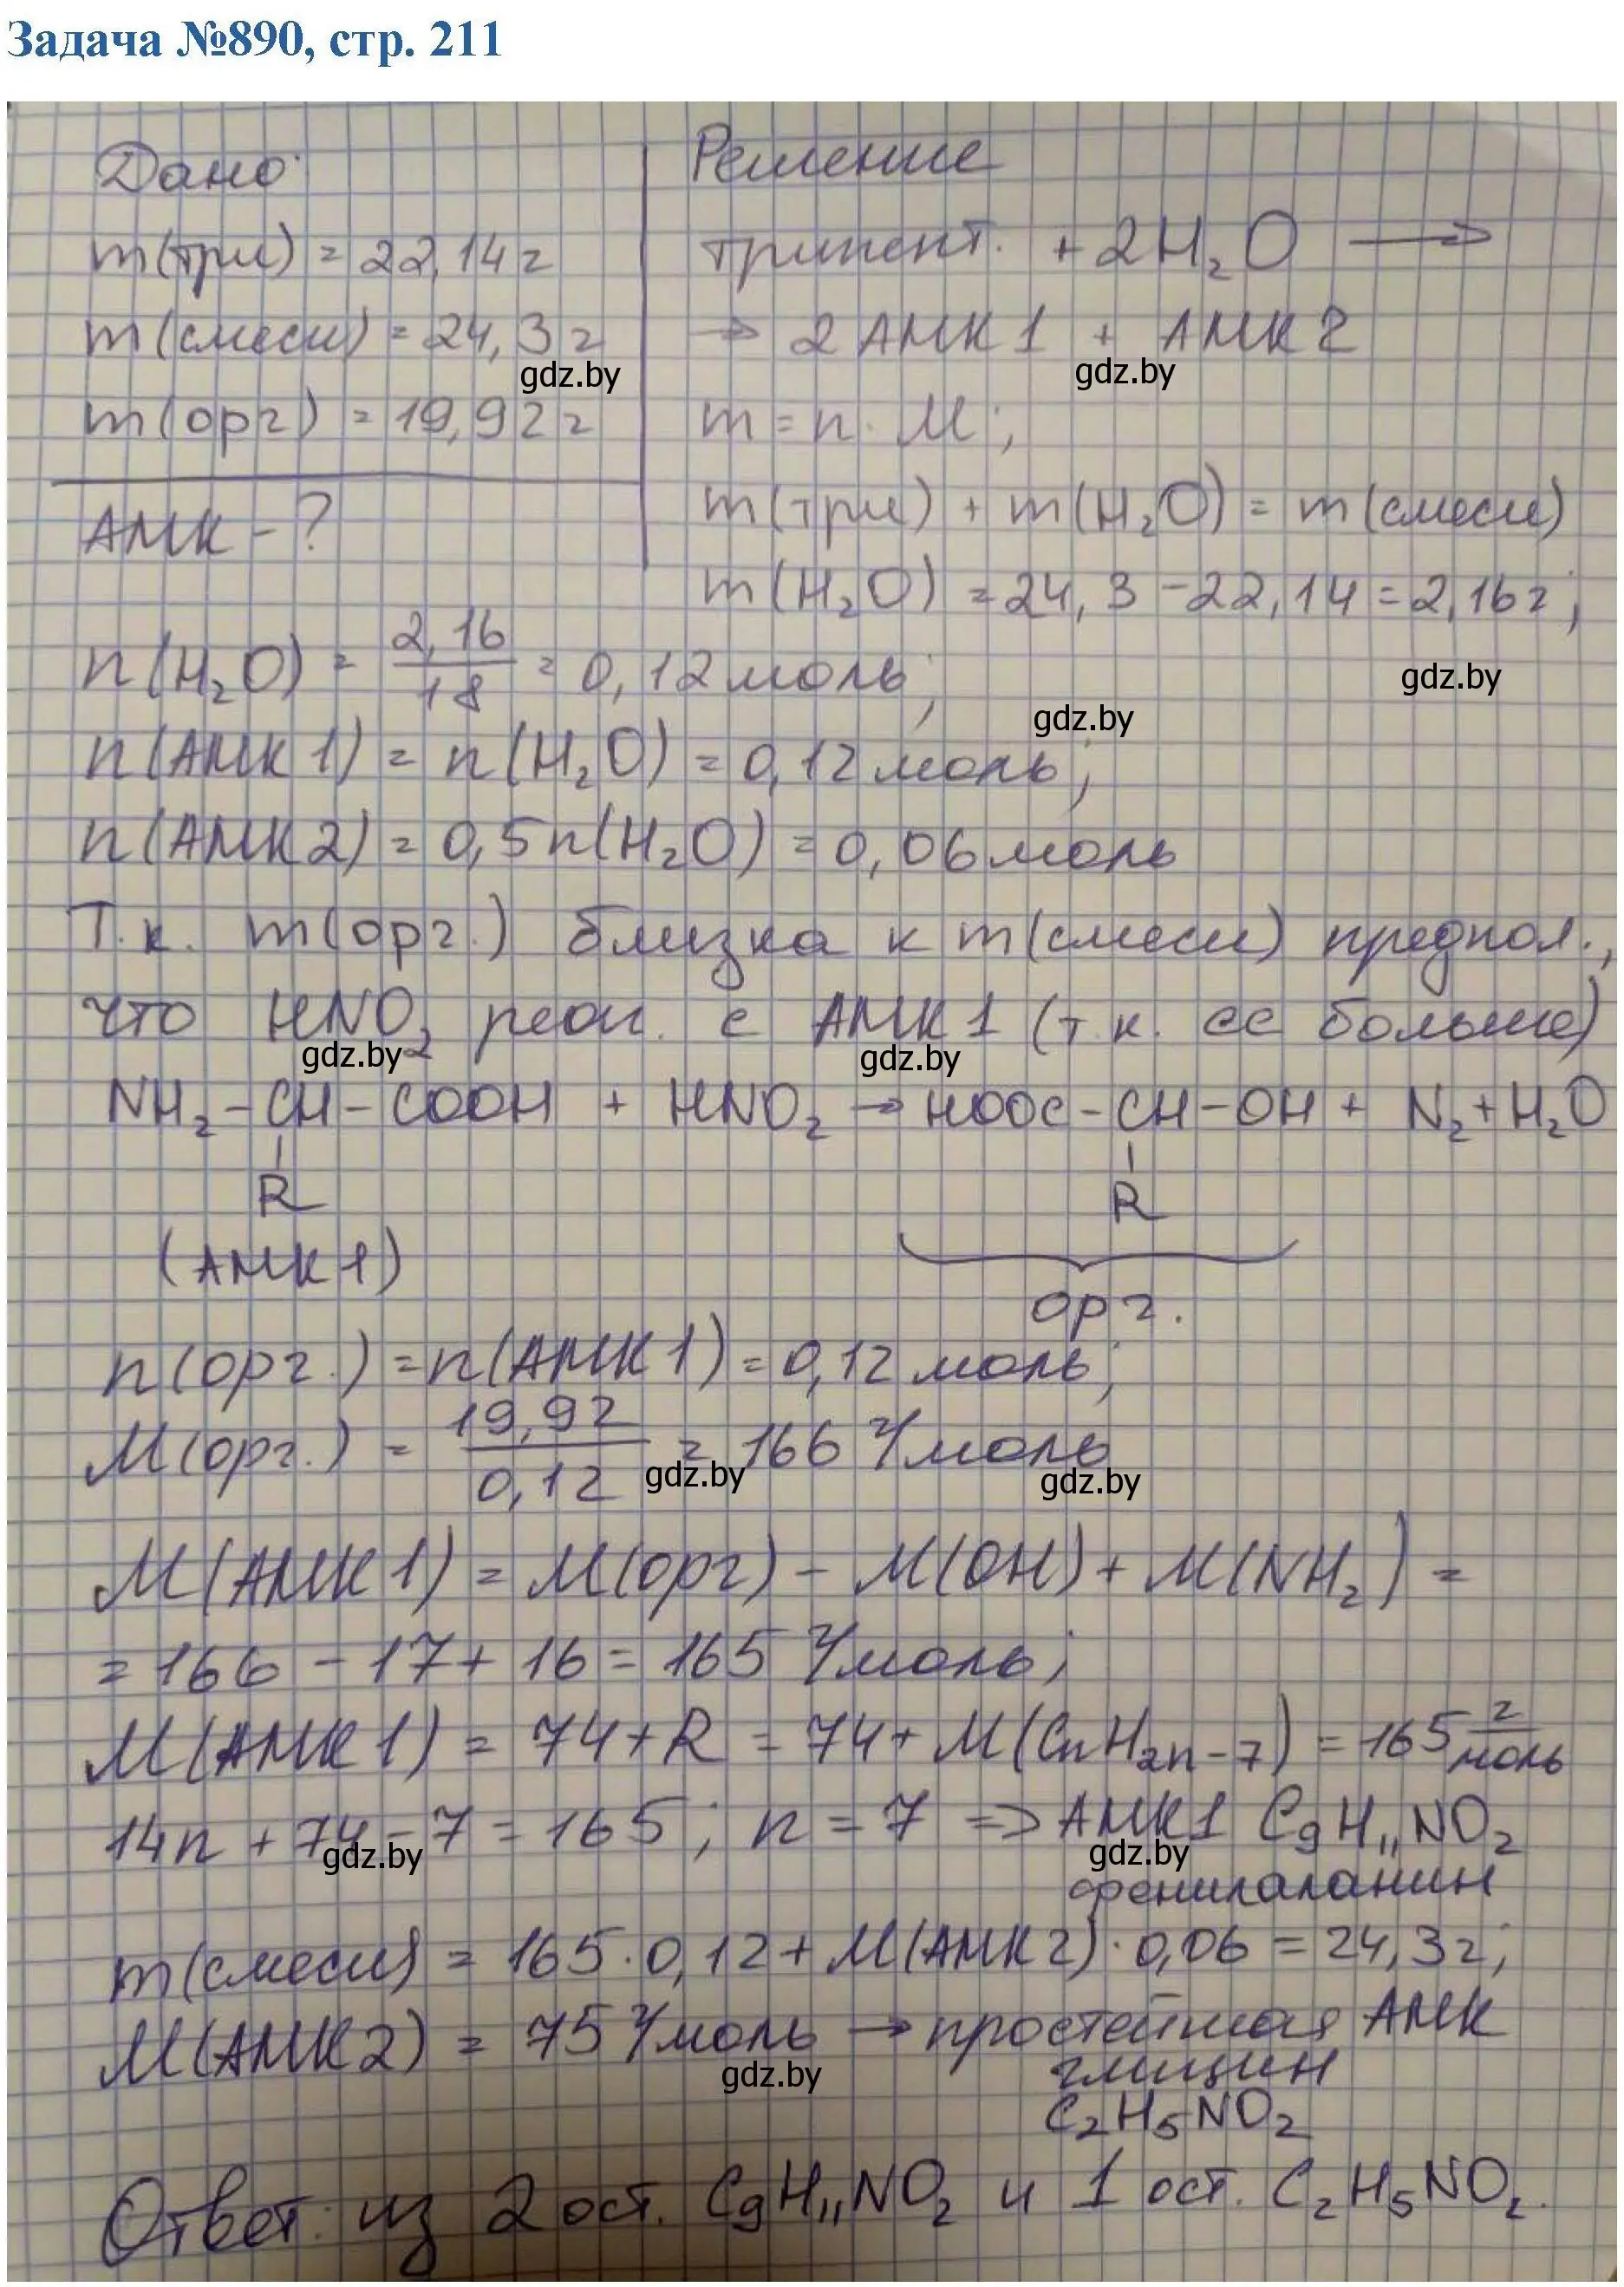 Задача №890, стр. 211
Дано:
m(три) = 22,14 г
m(смеси) = 24,3 г
gdz.by
m(орг) = 19,92 г
АМК - ?
Решение
трипепт. + 2H₂O →
→ 2 АМК 1 + АМК 2
gdz.by
m = n · M;
m(три) + m(H₂O) = m(смеси)
m(H₂O) = 24,3 - 22,14 = 2,16 г;
n(H₂O) = 2,16/18 = 0,12 моль;
gdz.by
gdz.by
n(АМК 1) = n(H₂O) = 0,12 моль;
n(АМК 2) = 0,5n(H₂O) = 0,06 моль
Т.к. m(орг.) близка к m(смеси) предпол.,
что HNO₂ реаг. с АМК 1 (т.к. ее больше)
gdz.by gdz.by
NH₂-CH-COOH + HNO₂ → HOOC-CH-OH + N₂ + H₂O
R R
(АМК 1)
орг.
n(орг.) = n(АМК 1) = 0,12 моль;
M(орг.) = 19,92/0,12 = 166 г/моль
gdz.by gdz.by
M(АМК 1) = M(орг) - M(OH) + M(NH₂) =
= 166 - 17 + 16 = 165 г/моль;
M(АМК 1) = 74 + R = 74 + M(CnH2n-7) = 165 г/моль
14n + 74 - 7 = 165; n = 7 => АМК1 C₉H₁₁NO₂
gdz.by gdz.by
фенилаланин
m(смеси) = 165 · 0,12 + M(АМК 2) · 0,06 = 24,3 г;
M(АМК 2) = 75 г/моль → простейшая АМК
gdz.by
глицин
C₂H₅NO₂
Ответ: из 2 ост. C₉H₁₁NO₂ и 1 ост. C₂H₅NO₂.